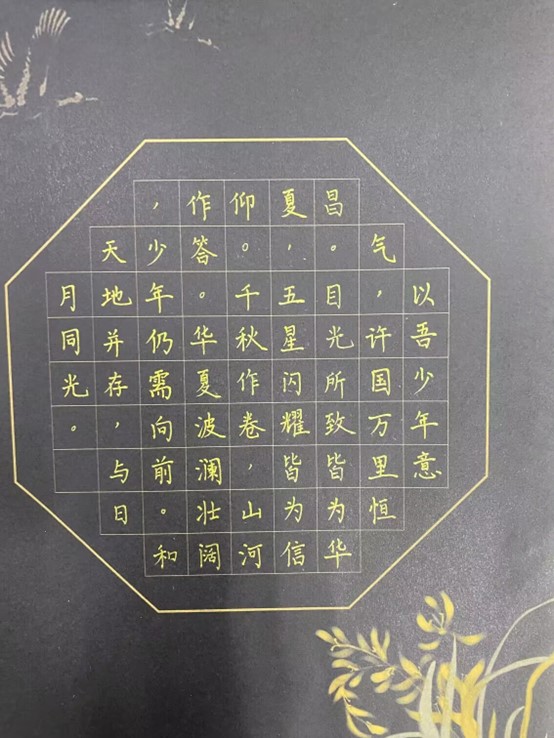 以吾少年意
气，许国万里恒
昌。目光所致皆为华
夏，五星闪耀皆为信
仰。千秋作卷，山河
作答。华夏波澜壮阔
，少年仍需向前。和
天地并存，与日
月同光。